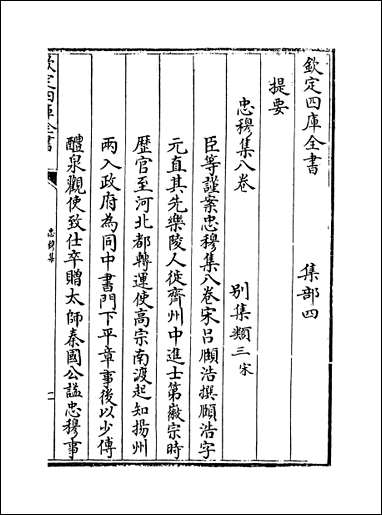 欽定四庫全書　集部四
提要
忠穆集八卷　別集類三宋
臣等謹案忠穆集八卷宋呂頤浩撰頤浩字
元直其先樂陵人徙齊州中進士第徽宗時
歴官至河北都轉運使高宗南渡起知揚州
兩入政府為同中書門下平章事後以少傅
醴泉觀使致仕卒贈太師秦國公謚忠穆事
欽定四庫全書
忠穆集
一